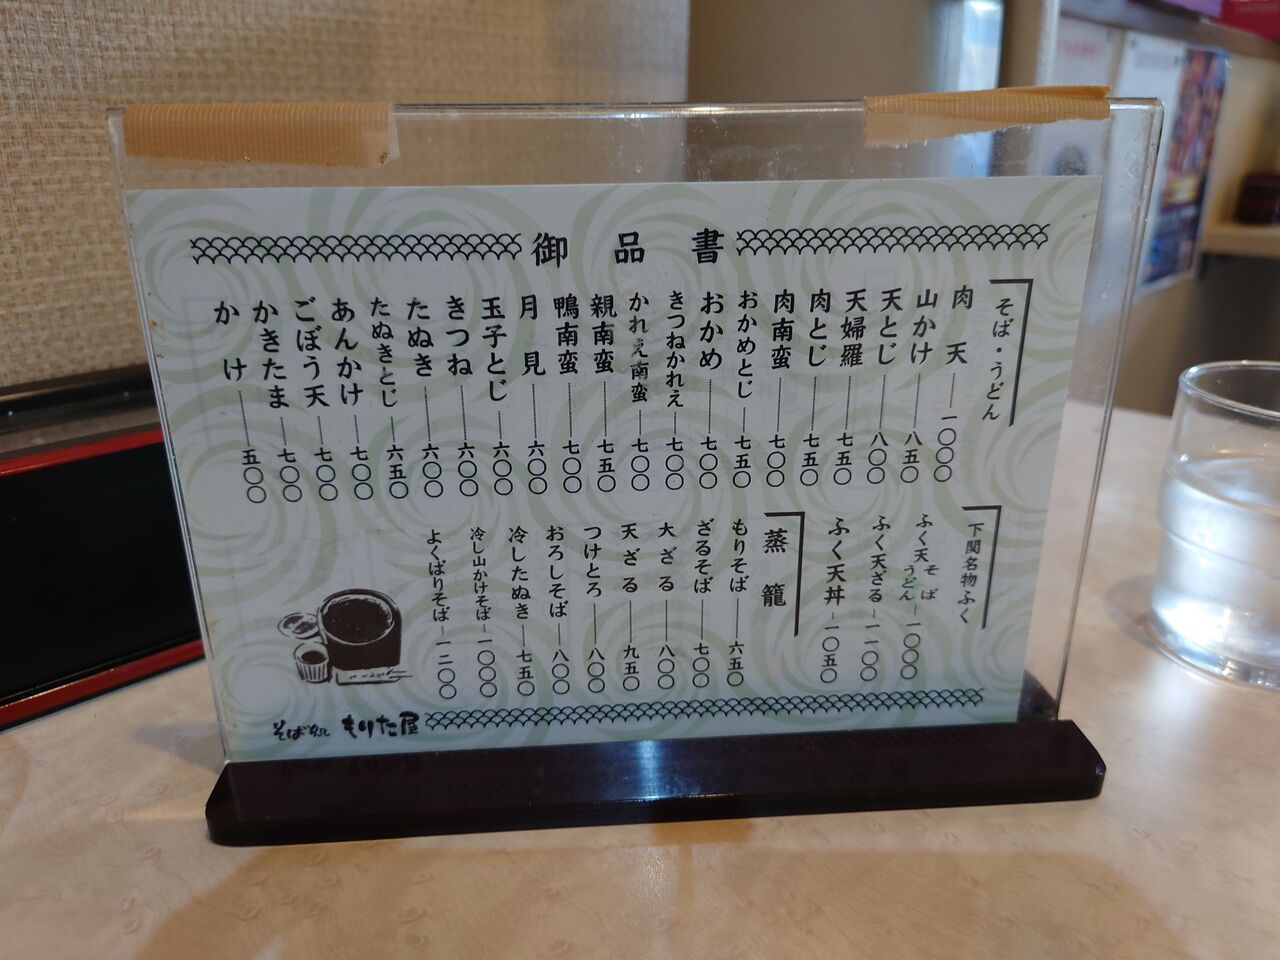 御品書
そば・うどん
肉天 一〇〇〇
山かけ 八五〇
天とじ 八〇〇
天婦羅 七五〇
肉とじ 七五〇
肉南蛮 七〇〇
おかめとじ 七五〇
おかめ 七〇〇
きつねかれえ 七〇〇
かれえ南蛮 七〇〇
親南蛮 七五〇
鴨南蛮 七〇〇
月見 六〇〇
玉子とじ 六〇〇
きつね 六〇〇
たぬき 六〇〇
たぬきとじ 六五〇
あんかけ 七〇〇
ごぼう天 七〇〇
かきたま 七〇〇
かけ 五〇〇
下関名物ふく
ふく天そばうどん 一〇〇〇
ふく天ざる 一一〇〇
ふく天丼 一〇五〇
蒸籠
もりそば 六五〇
ざるそば 七〇〇
大ざる 八〇〇
天ざる 九五〇
つけとろ 八〇〇
おろしそば 八〇〇
冷したぬき 七五〇
冷し山かけそば 一〇〇〇
よくばりそば 一二〇〇
そば処 もりた屋